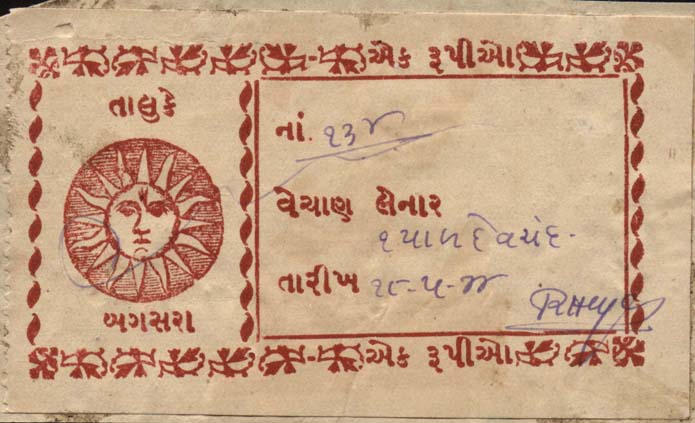 એક રૂપીઓ
તાલુકે
બગસરા
નાં. ૧૩૪
વેચાણ લેનાર
દેવચંદ
તારીખ ૨૮-૫-૪૪
એક રૂપીઓ